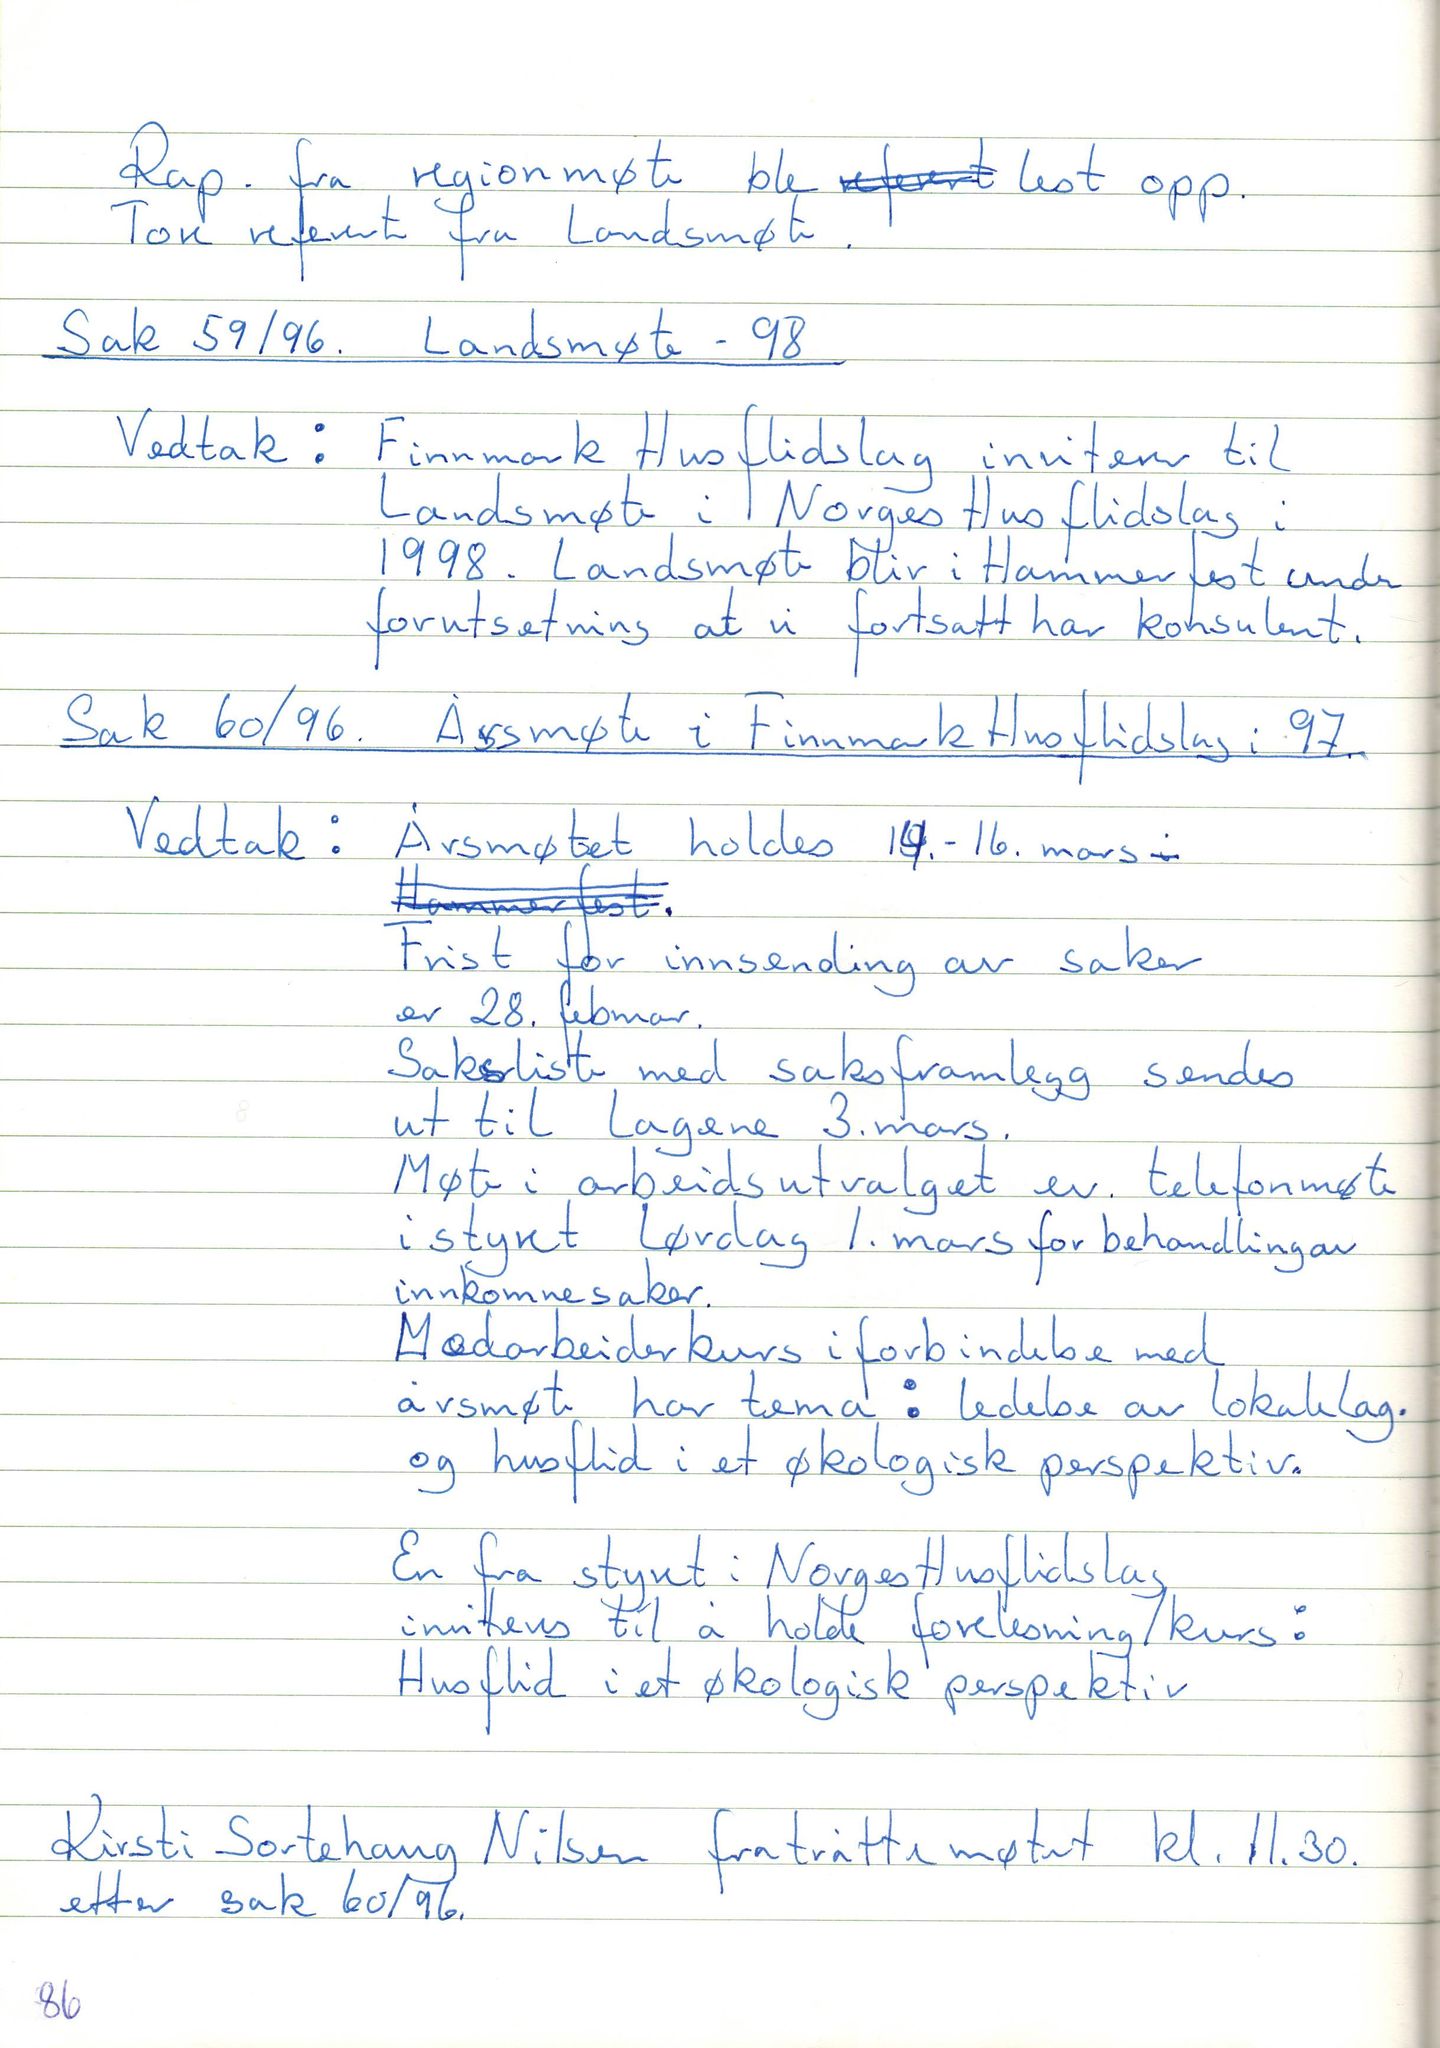 Rap. fra regionmøte ble referert lest opp.
Tove referert fra Landsmøte.
Sak 59/96. Landsmøte - 98
Vedtak: Finnmark Husflidslag inviterer til
Landsmøte i Norges Husflidslag i
1998. Landsmøte blir i Hammerfest under
forutsetning at vi fortsatt har konsulent.
Sak 60/96. Årsmøte i Finnmark Husflidslag i 97.
Vedtak: Årsmøtet holdes 14.-16. mars i
Hammerfest.
Frist for innsending av saker
er 28. februar.
Saksliste med saksframlegg sendes
ut til lagene 3. mars.
Møte i arbeidsutvalget ev. telefonmøte
i styret lørdag 1. mars for behandling av
innkomne saker.
Medarbeiderkurs i forbindelse med
årsmøte har tema: ledelse av lokallag.
og husflid i et økologisk perspektiv.
En fra styret i Norges Husflidslag
inviteres til å holde forelesning/kurs:
Husflid i et økologisk perspektiv
Kirsti Sortehaug Nilsen fratråtte møtet kl. 11.30.
etter sak 60/96.
86